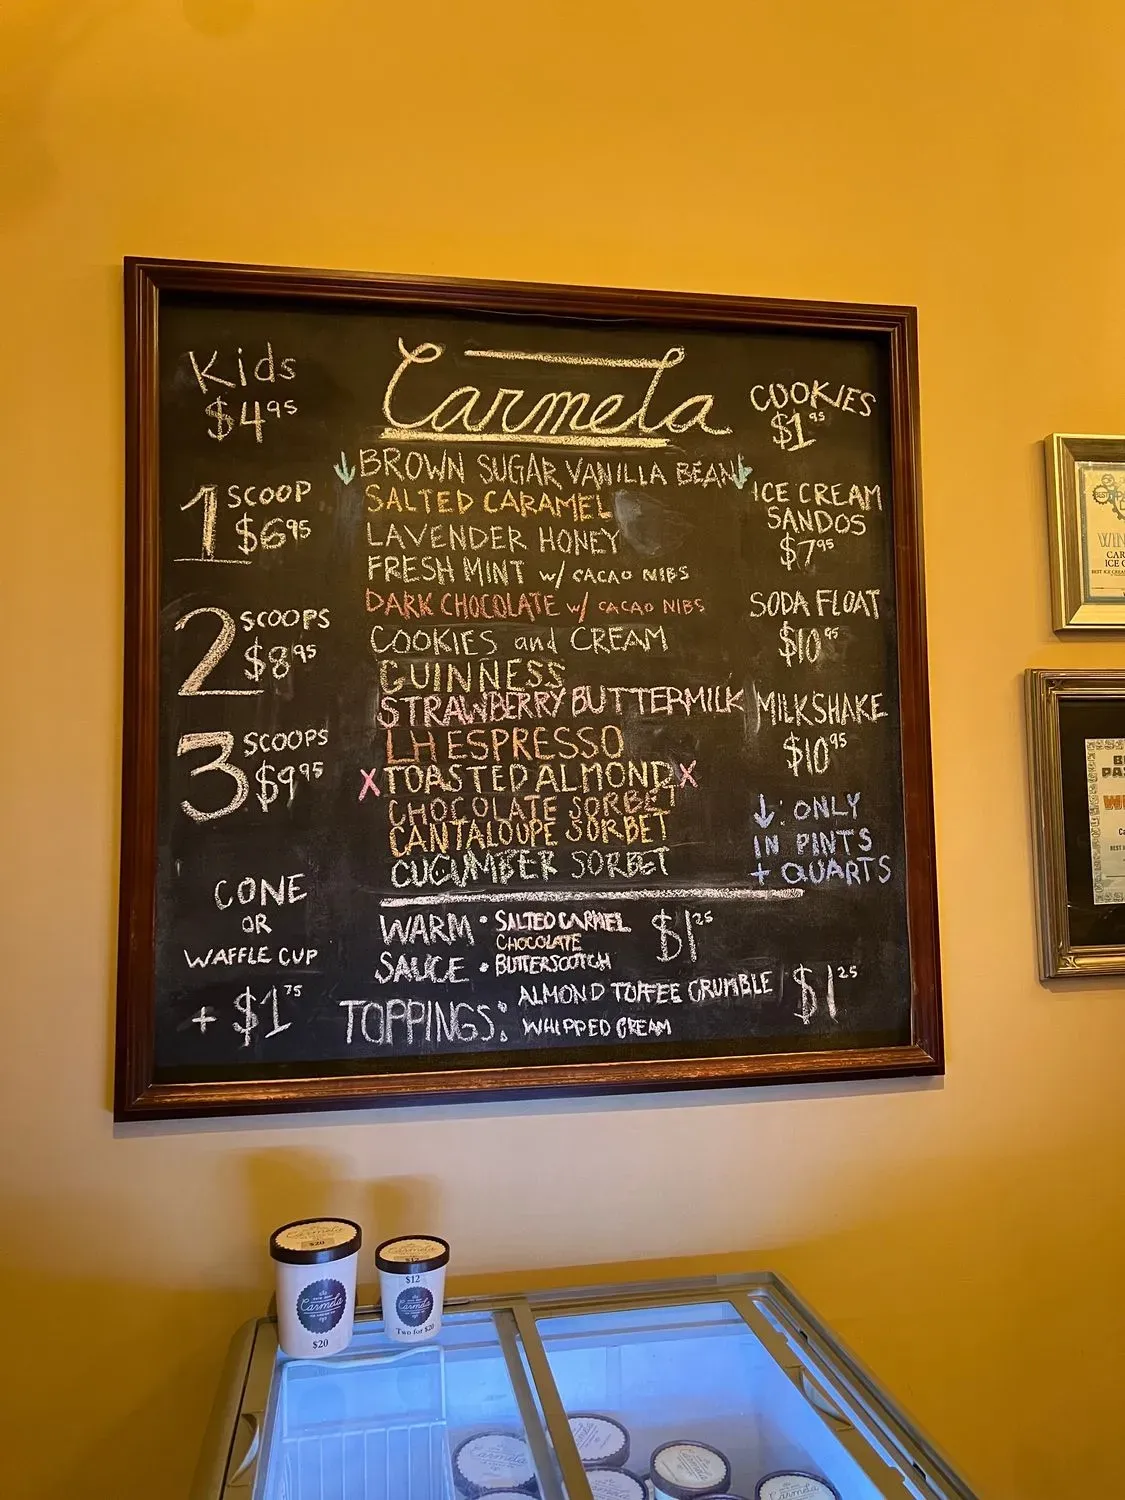 Kids
$4.95
1 SCOOP
$6.95
2 SCOOPS
$8.95
3 SCOOPS
$9.95
CONE
OR
WAFFLE CUP
+ $1.75
Carmela
↓ BROWN SUGAR VANILLA BEAN ↓
SALTED CARAMEL
LAVENDER HONEY
FRESH MINT w/ CACAO NIBS
DARK CHOCOLATE w/ CACAO NIBS
COOKIES and CREAM
GUINNESS
STRAWBERRY BUTTERMILK
LH ESPRESSO
X TOASTED ALMOND X
CHOCOLATE SORBET
CANTALOUPE SORBET
CUCUMBER SORBET
WARM • SALTED CARMEL $1.25
CHOCOLATE
SAUCE • BUTTERSCOTCH
TOPPINGS: ALMOND TOFFEE CRUMBLE $1.25
WHIPPED CREAM
COOKIES
$1.95
ICE CREAM
SANDOS
$7.95
SODA FLOAT
$10.95
MILKSHAKE
$10.95
↓: ONLY
IN PINTS
+ QUARTS
$20
Carmela
$20
$12
$12
Carmela
Two for $20
Carmela
Carmela
Carmela